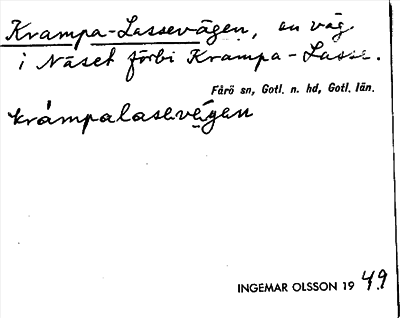 Krampa-Lassevägen, en väg
i Näset förbi Krampa-Lasse.
Fårö sn, Gotl. n. hd, Gotl. län.
krampalasevęgen
INGEMAR OLSSON 19 49